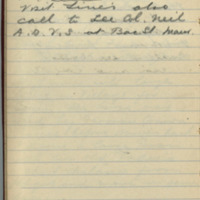 Visit Lines also
call to see Col. Neil
A.D.V.S at Bac St. Maur.